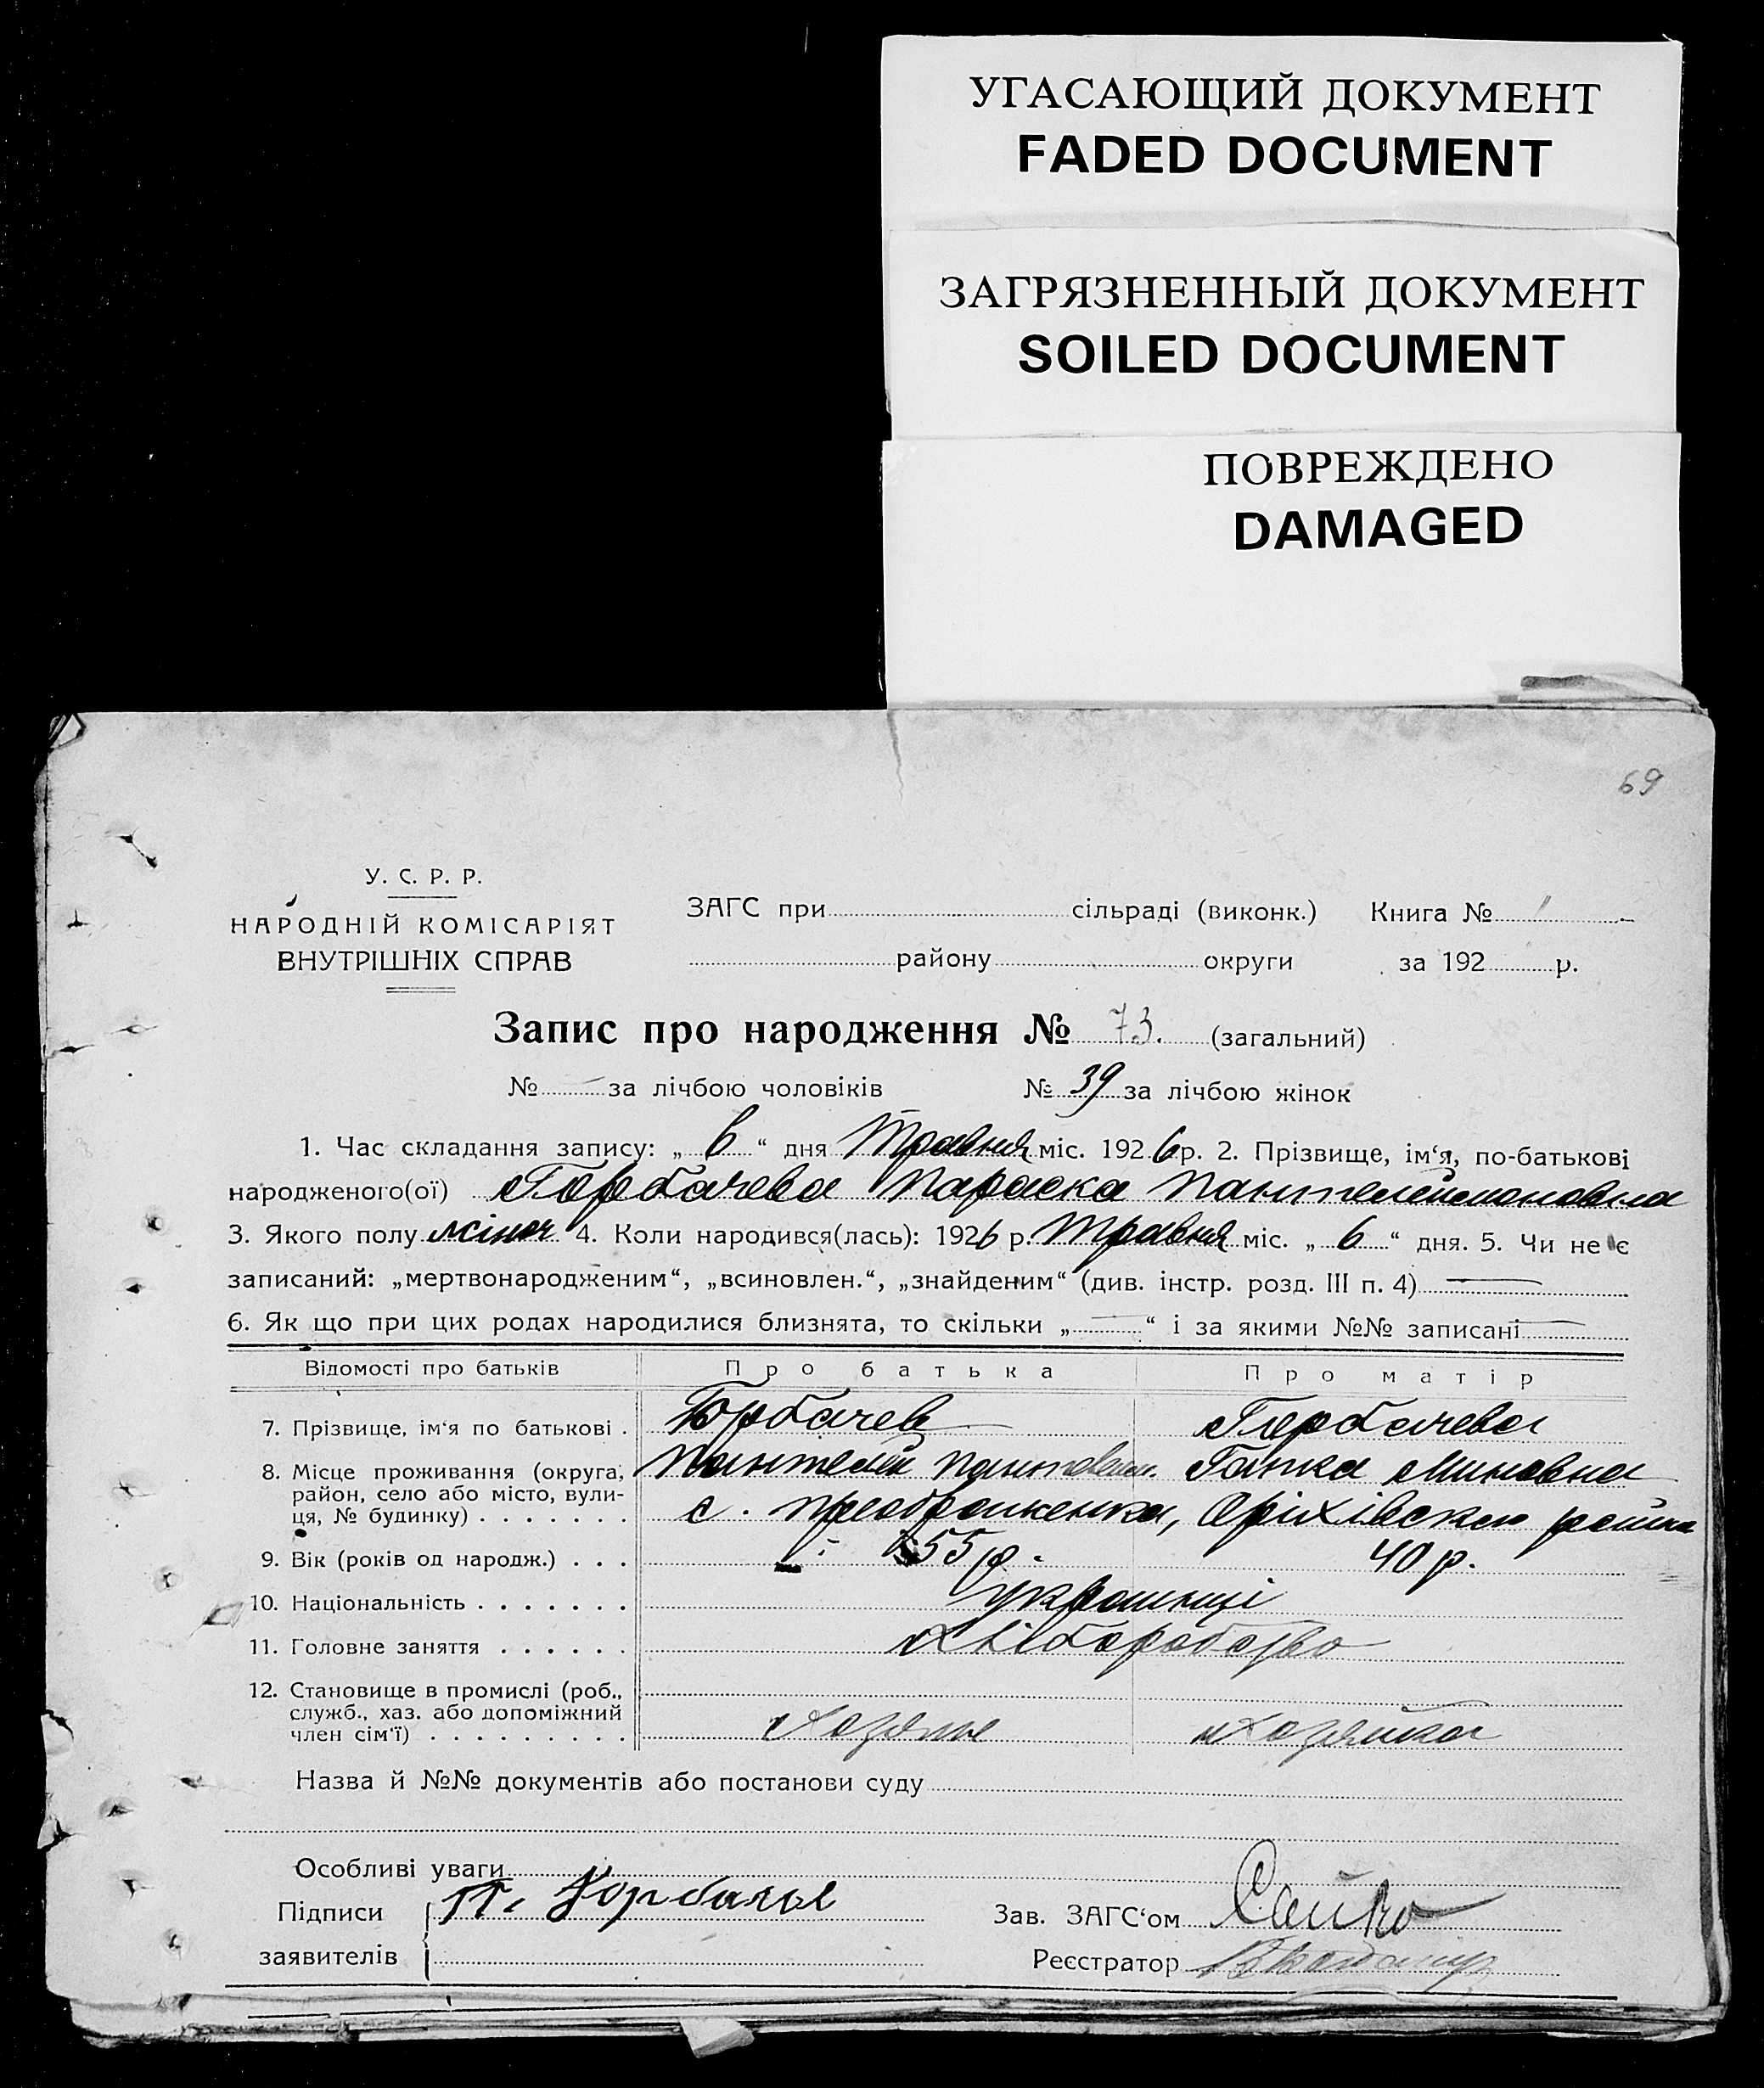 УГАСАЮЩИЙ ДОКУМЕНТ
FADED DOCUMENT
ЗАГРЯЗНЕННЫЙ ДОКУМЕНТ
SOILED DOCUMENT
ПОВРЕЖДЕНО
DAMAGED
69
У. С. Р. Р.
НАРОДНІЙ КОМІСАРІЯТ
ВНУТРІШНІХ СПРАВ
ЗАГС при сільраді (виконк.) Книга № 1
району округи за 192 р.
Запис про народження № 73. (загальний)
№ — за лічбою чоловіків № 39 за лічбою жінок
1. Час складання запису: „ 6 “ дня Травня міс. 1926 р. 2. Прізвище, ім‘я, по-батькові
народженого(ої) Горбачева Параска Пантелеймоновна
3. Якого полу жіноч 4. Коли народився(лась): 1926 р. Травня міс. „ 6 “ дня. 5. Чи не є
записаний: „мертвонародженим“, „всиновлен.“, „знайденим“ (див. інстр. розд. III п. 4) —
6. Як що при цих родах народилися близнята, то скільки „ — “ і за якими №№ записані —
Відомості про батьків Про батька Про матір
7. Прізвище, ім‘я по батькові . Горбачев Горбачева
Пантелей Ганка Миновна
8. Місце проживання (округа, район, село або місто, вули-ця, № будинку) . . . . . . . с. Преображенка, Оріхівского район
9. Вік (років од народж.) . . . 55 р. 40 р.
10. Національність . . . . . . . Українці
11. Головне заняття . . . . . . Хліборобство
12. Становище в промислі (роб.,
служб., хаз. або допоміжний
член сім‘ї) . . . . . . . . . Хозяїн Хозяйка
Назва й №№ документів або постанови суду
Особливі уваги
Підписи П. Горбачов Зав. ЗАГС‘ом Сайко
заявителів Реєстратор